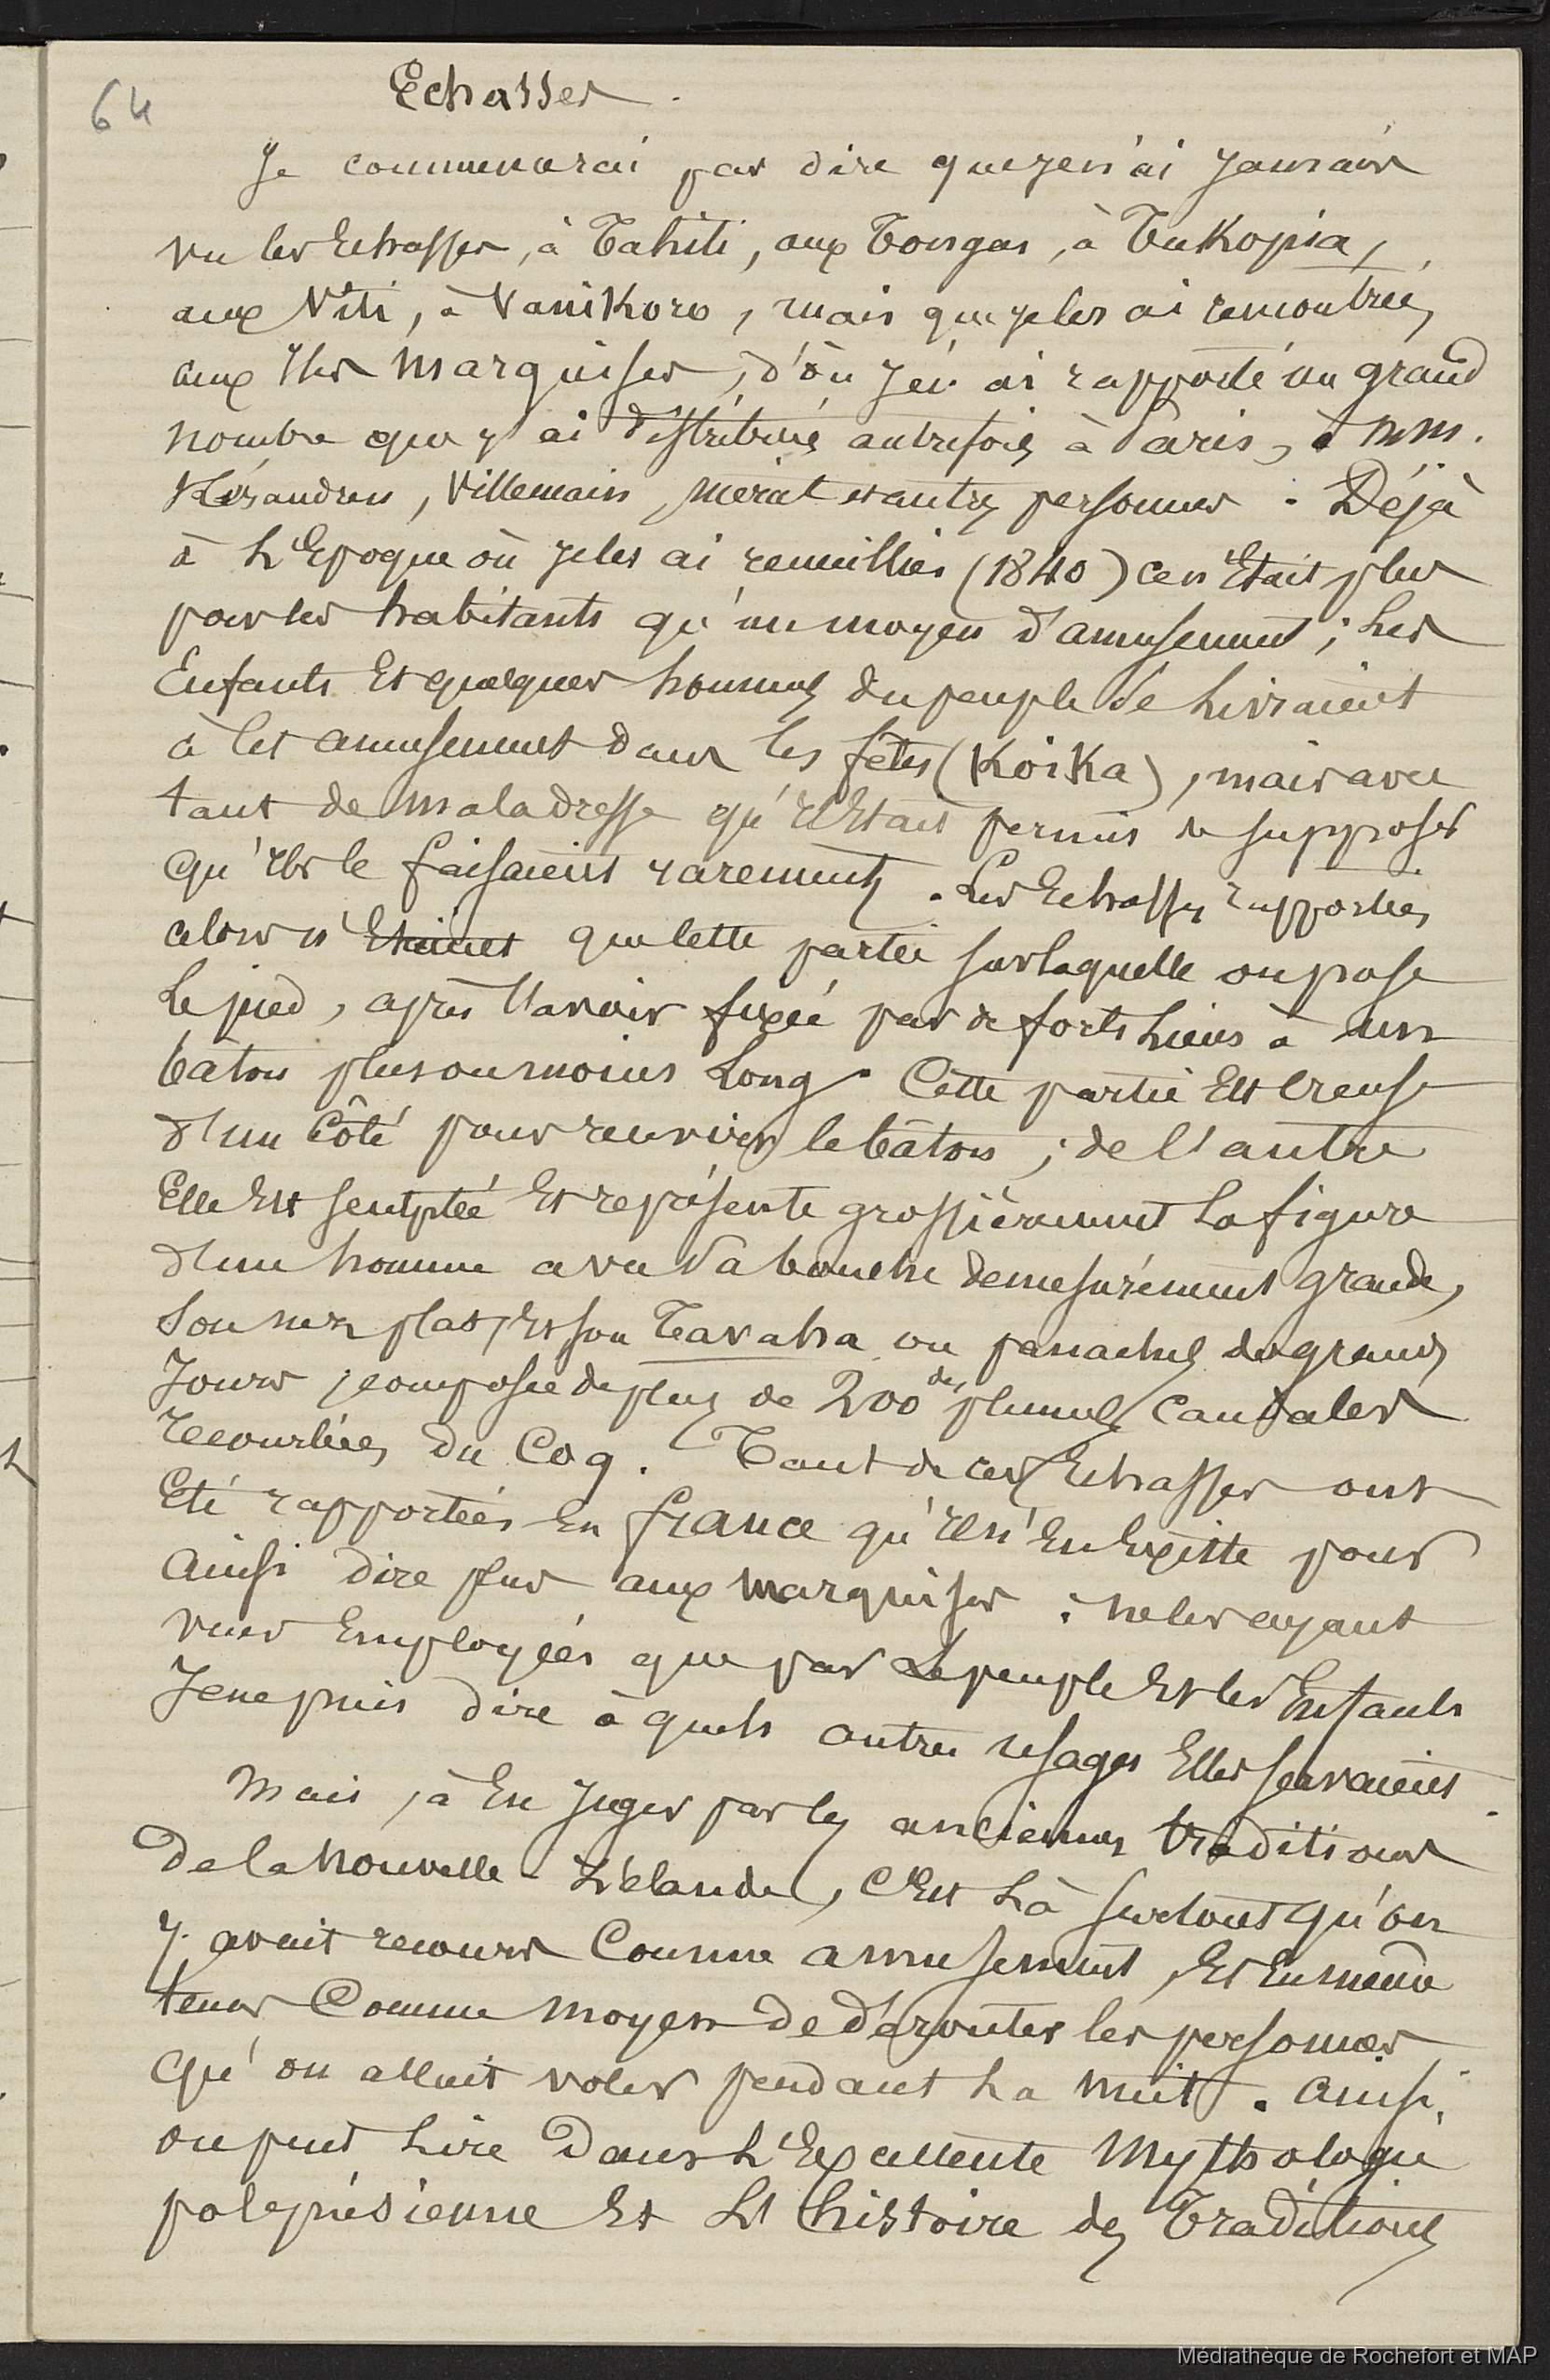 64
Echasses.
Je commencerai par dire que je n'ai jamais
vu les Echasses, à Tahiti, aux Tongas, à Tukopia,
aux Viti, à Vanikoro, mais que je les ai rencontrées
aux Iles Marquises, d'où j'en ai rapporté un grand
nombre que j'ai distribué autrefois à Paris, à MM.
Kéraudren, Villemain, Mérat et autres personnes. Déjà
à l'Epoque où je les ai recueillies (1840) ce n'Etait plus
pour les habitants qu'un moyen d'amusement; les
Enfants Et quelques hommes du peuple se livraient
à cet amusement dans les fêtes (Koika), mais avec
tant de maladresse qu'il Etait permis de supposer
qu'ils le faisaient rarement. Les Echasses rapportées
alors n'Etaient que cette partie sur laquelle on pose
le pied, après l'avoir fixée par de forts liens à un
bâton plus ou moins long. Cette partie Est creuse
d'un côté pour recevoir le bâton; de l'autre
Elle Est sculptée Et représente grossièrement la figure
d'un homme avec sa bouche demesurément grande,
son nez plat, Et son Tavaha ou panaches des grands
jours, composée de plus de 200 des plumes caudales
recourbées du Coq. Tant de ces Echasses ont
Eté rapportées En france qu'il n'En Existe pour
ainsi dire plus aux marquises: ne les ayant
vues Employées que par le peuple Et les Enfants
Je ne puis dire à quels autres usages Elles servaient.
Mais, à En juger par les anciennes traditions
De la Nouvelle-Zélande, c'Est là surtout qu'on
y avait recours Comme amusement, Et En même
tems Comme moyen de dérouter les personnes
qu'on allait voler pendant la nuit. Ainsi,
on peut lire Dans l'Excellente Mythologie
polynésienne Et l'histoire des Traditions
Médiathèque de Rochefort et MAP